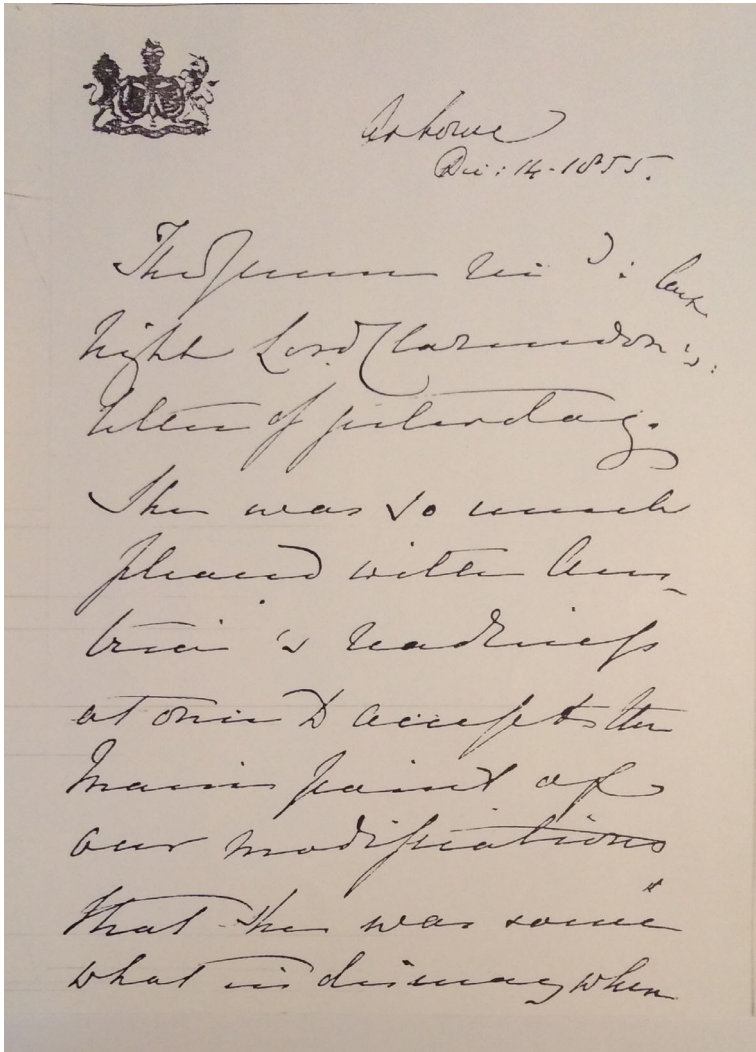 Osborne
Dec: 14 - 1855.
The Queen rec'd: last
night Lord Clarendon's:
letter of yesterday.
She was so much
pleased with Aus-
tria's readiness
at once to accept the
main point of
our modifications
that she was some
what in dismay when